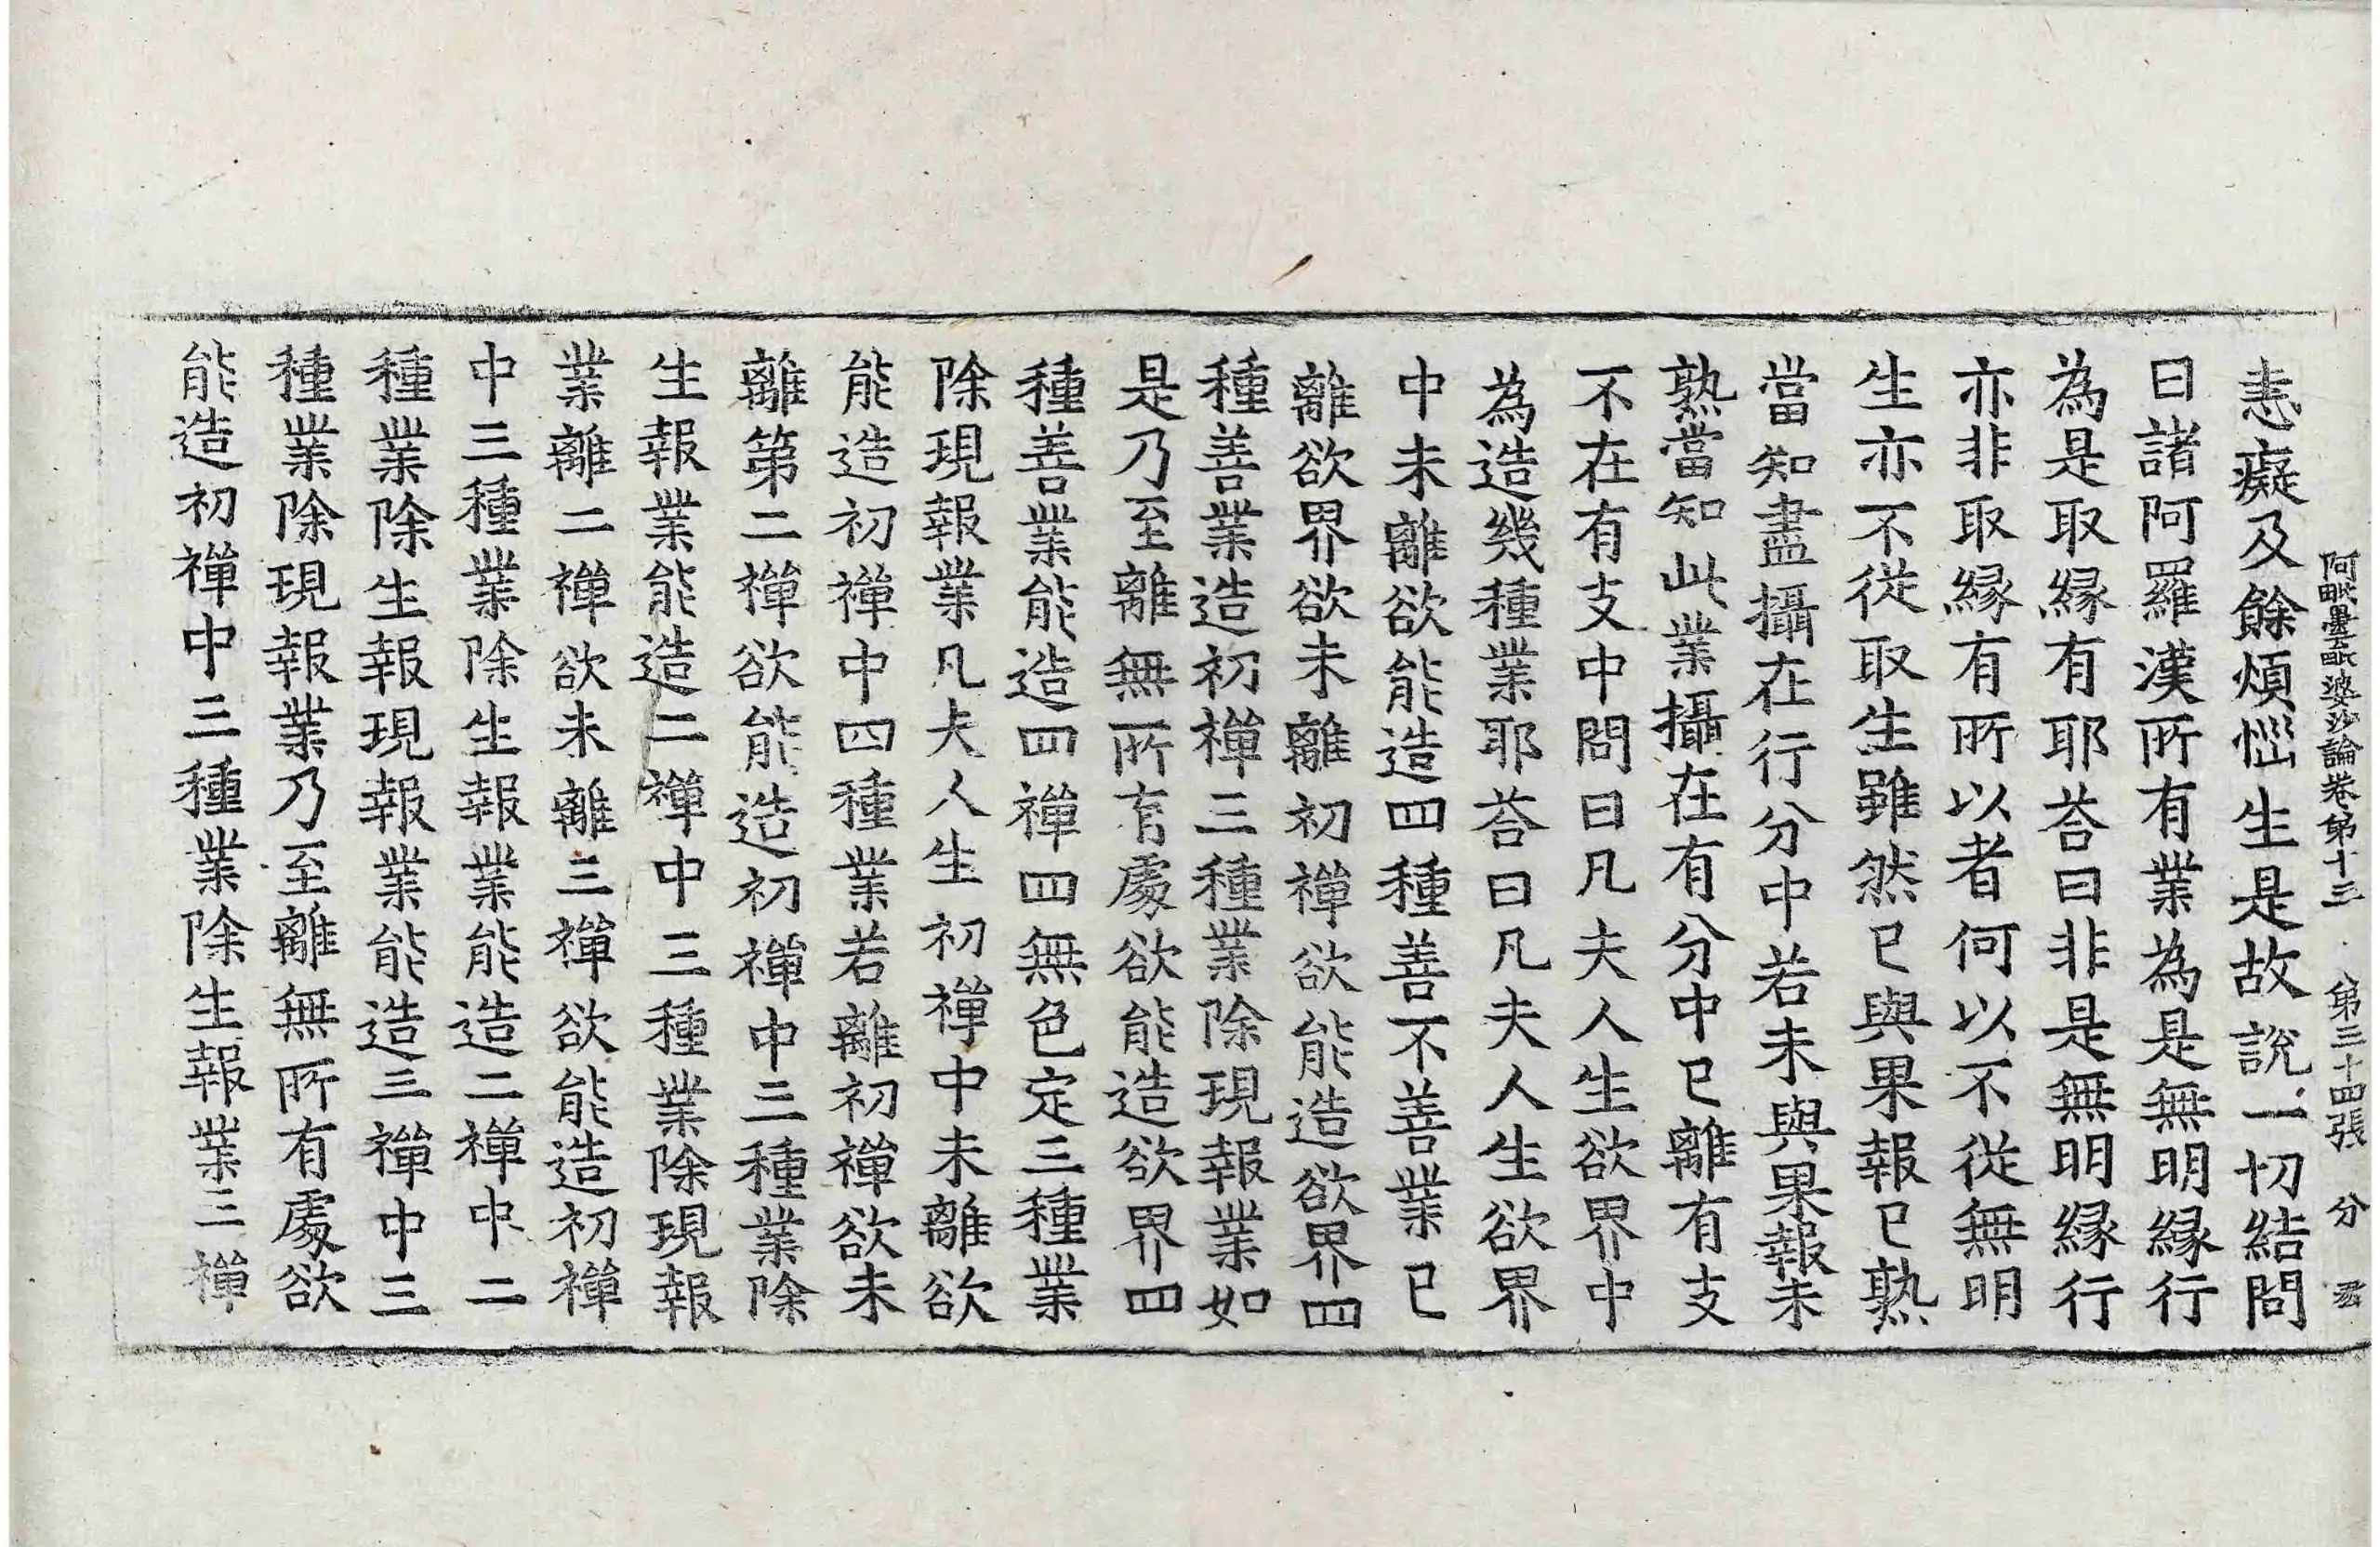 阿毗曇毗婆沙論卷第十三　第三十四張　分
恚癡及餘煩惱生是故說一切結問
曰諸阿羅漢所有業為是無明緣行
為是取緣有耶荅曰非是無明緣行
亦非取緣有所以者何以不從無明
生亦不從取生雖然已與果報已熟
當知盡攝在行分中若未與果報未
熟當知此業攝在有分中已離有支
不在有支中問曰凡夫人生欲界中
為造幾種業耶荅曰凡夫人生欲界
中未離欲能造四種善不善業已
離欲界欲未離初禪欲能造欲界四
種善業造初禪三種業除現報業如
是乃至離無所有處欲能造欲界四
種善業能造四禪四無色定三種業
除現報業凡夫人生初禪中未離欲
能造初禪中四種業若離初禪欲未
離第二禪欲能造初禪中三種業除
生報業能造二禪中三種業除現報
業離二禪欲未離三禪欲能造初禪
中三種業除生報業能造二禪中二
種業除生報現報業能造三禪中三
種業除現報業乃至離無所有處欲
能造初禪中三種業除生報業三禪